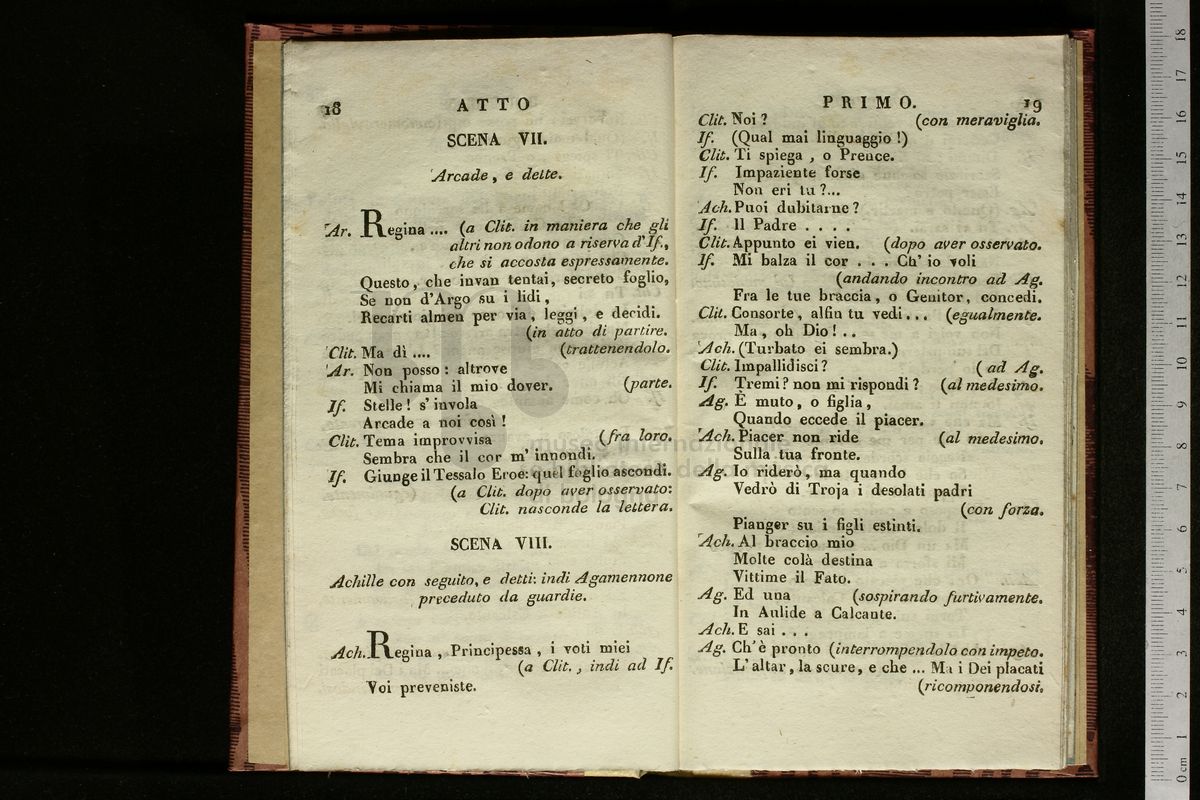 18
ATTO
SCENA VII.
Arcade, e dette.
Ar. Regina .... (a Clit. in maniera che gli
altri non odono a riserva d'If.,
che si accosta espressamente.
Questo, che invan tentai, secreto foglio,
Se non d'Argo su i lidi,
Recarti almen per via, leggi, e decidi.
(in atto di partire.
Clit. Ma dì .... (trattenendolo.
Ar. Non posso: altrove
Mi chiama il mio dover. (parte.
If. Stelle! s'invola
Arcade a noi così!
Clit. Tema improvvisa (fra loro.
Sembra che il cor m'innondi.
If. Giunge il Tessalo Eroe: quel foglio ascondi.
(a Clit. dopo aver osservato:
Clit. nasconde la lettera.
SCENA VIII.
Achille con seguito, e detti: indi Agamennone
preceduto da guardie.
Ach. Regina, Principessa, i voti miei
(a Clit., indi ad If.
Voi preveniste.
PRIMO.
19
Clit. Noi? (con meraviglia.
If. (Qual mai linguaggio!)
Clit. Ti spiega, o Prence.
If. Impaziente forse
Non eri tu?...
Ach. Puoi dubitarne?
If. Il Padre . . . .
Clit. Appunto ei vien. (dopo aver osservato.
If. Mi balza il cor . . . Ch'io voli
(andando incontro ad Ag.
Fra le tue braccia, o Genitor, concedi.
Clit. Consorte, alfin tu vedi... (egualmente.
Ma, oh Dio!..
Ach. (Turbato ei sembra.)
Clit. Impallidisci? (ad Ag.
If. Tremi? non mi rispondi? (al medesimo.
Ag. È muto, o figlia,
Quando eccede il piacer.
Ach. Piacer non ride (al medesimo.
Sulla tua fronte.
Ag. Io riderò, ma quando
Vedrò di Troja i desolati padri
(con forza.
Pianger su i figli estinti.
Ach. Al braccio mio
Molte colà destina
Vittime il Fato.
Ag. Ed una (sospirando furtivamente.
In Aulide a Calcante.
Ach. E sai . . .
Ag. Ch'è pronto (interrompendolo con impeto.
L'altar, la scure, e che ... Ma i Dei placati
(ricomponendosi.
museo internazionale
0 cm 1 2 3 4 5 6 7 8 9 10 11 12 13 14 15 16 17 18